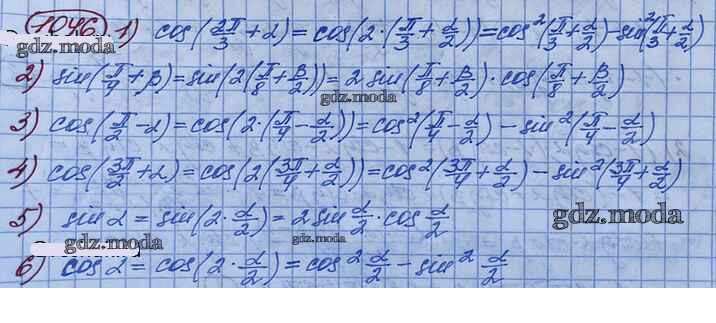 1046 1) cos(2π/3 + α) = cos(2·(π/3 + α/2)) = cos²(π/3 + α/2) - sin²(π/3 + α/2)
2) sin(π/4 + β) = sin(2(π/8 + β/2)) = 2 sin(π/8 + β/2)·cos(π/8 + β/2)
gdz.moda
3) cos(π/2 - α) = cos(2·(π/4 - α/2)) = cos²(π/4 - α/2) - sin²(π/4 - α/2)
4) cos(3π/2 + α) = cos(2(3π/4 + α/2)) = cos²(3π/4 + α/2) - sin²(3π/4 + α/2)
5) sin α = sin(2·α/2) = 2 sin α/2 · cos α/2
gdz.moda
gdz.moda
6) cos α = cos(2·α/2) = cos² α/2 - sin² α/2
gdz.moda